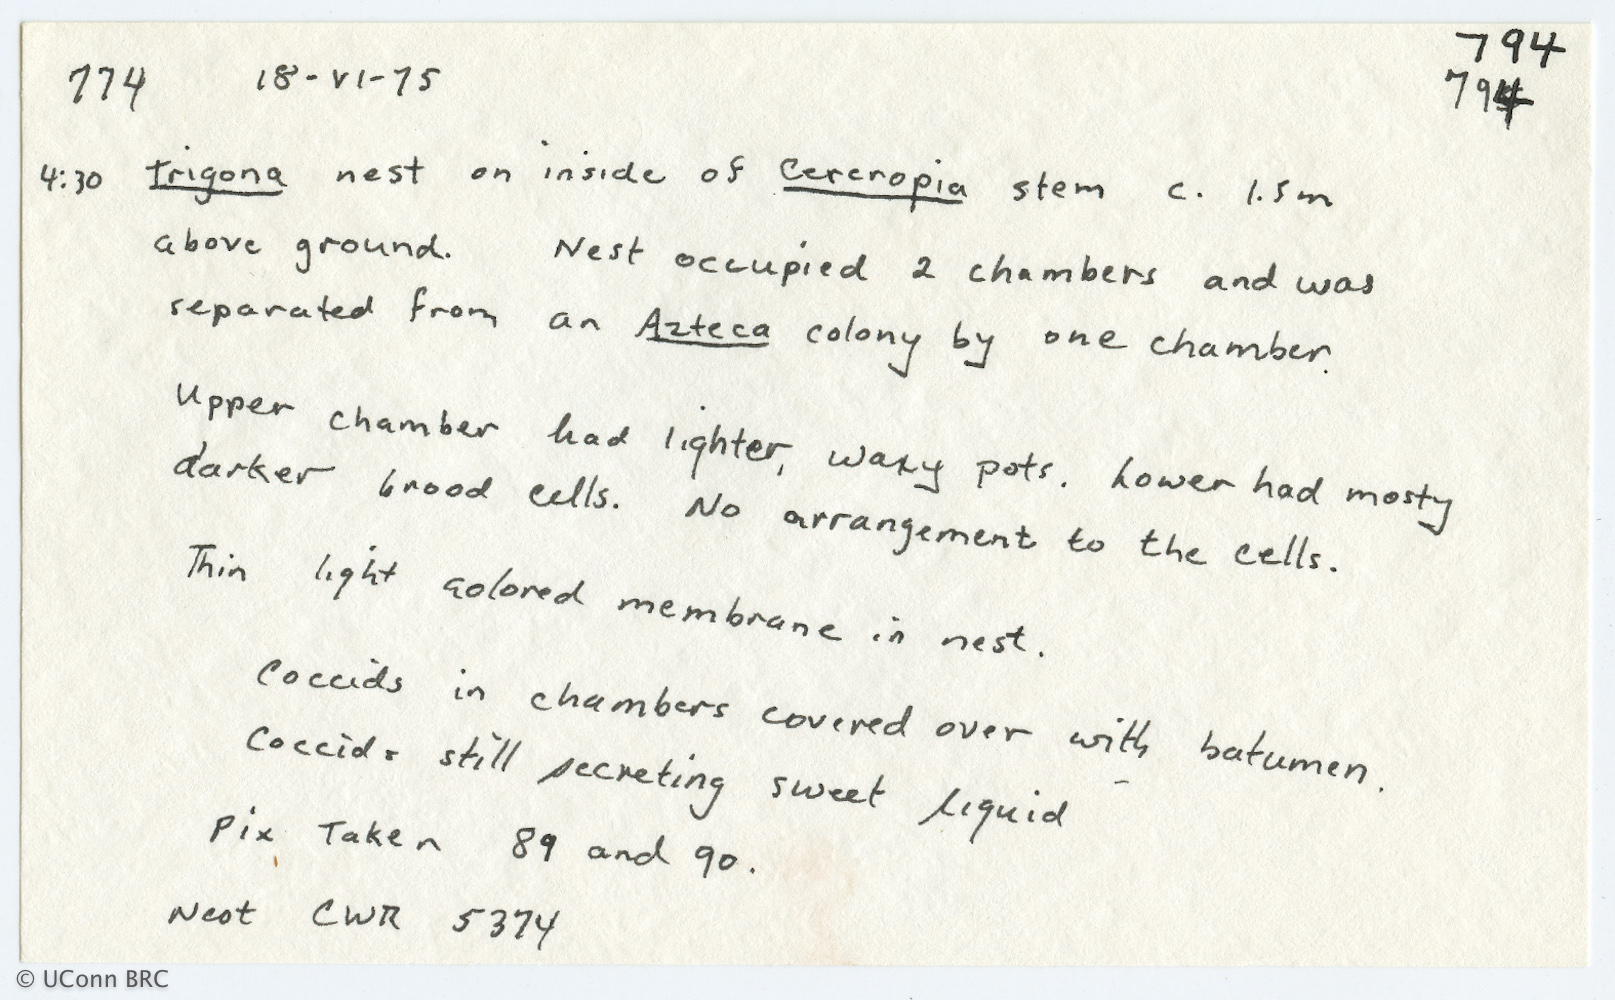 794
774 18-VI-75 794
4:30 Trigona nest on inside of Cercropia stem c. 1.5m
above ground. Nest occupied 2 chambers and was
separated from an Azteca colony by one chamber.
Upper chamber had lighter, waxy pots. Lower had mosty
darker brood cells. No arrangement to the cells.
Thin light colored membrane in nest.
Coccids in chambers covered over with batumen.
Coccids still secreting sweet liquid
Pix Taken 89 and 90.
Neot CWR 5374
© UConn BRC